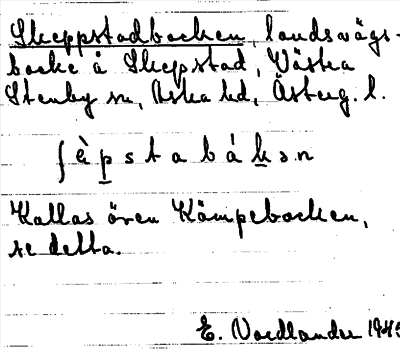 Skeppstadbacken, landsvägs-
backe å Skepstad, Västra
Stenby sn, Aska hd, Österg. l.
ʃèpstabákən
Kallas även Kämpebacken,
se detta.
E. Nordlander 1945